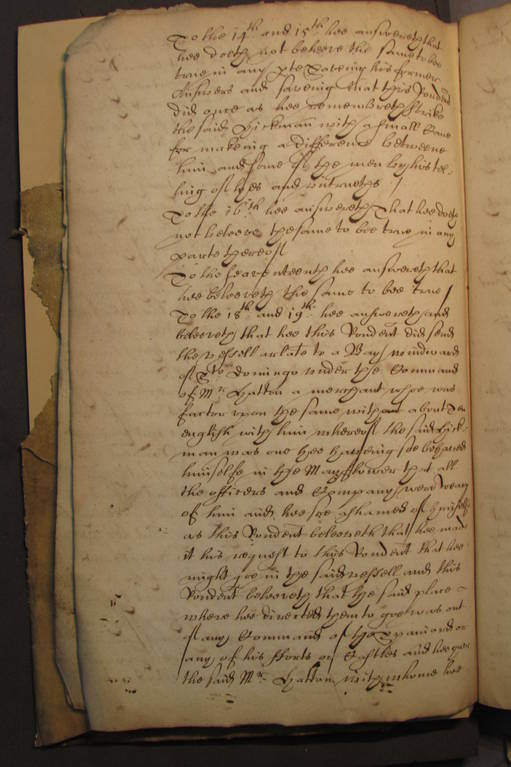 To the 14th and 15th hee answereth that
hee doth not beleeve the same to bee
true in any pte saveing his former
Answers and saveing that this Rondent
did once as hee remembreth strike
the said Hickman with a small Cane
for makeing a difference betweene
him and some of the men by his tel-
ling of lyes and untrueths /
To the 16th hee answereth That hee doth
not beleeve the same to bee true in any
parte thereof
To the seaventeenth hee answereth that
hee beleeveth the same to bee true /
To the 18th and 19th hee answereth and
beleeveth that hee this Rondent did send
the vessell arlate to a Bay windward
of Sto domingo under the Command
of Mr Hatton a merchant whoe was
factor upon the same with about Ten
english with him whereof the said Hick-
man was one hee haveing soe behaved
himselfe in the Mayflower that all
the officers and Company were weary
of him and hee soe ashamed of himselfe
as this Rondent beleeveth that hee made
it his request to this Rondent that hee
might goe in the said vessell and this
Rondent beleeveth that the said place
where hee directed them to goe was out
of any Command of the Spaniards or
any of his fforts or Castles and hee gave
the said Mr Hatton with whome hee